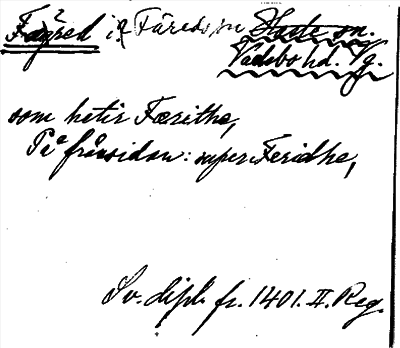 Fägred i Färeds sn
Vadsbo hd. Vg.
som hetir Færitha,
På frånsidan: super Feridha,
Sv. dipl. fr. 1401. II. Reg.